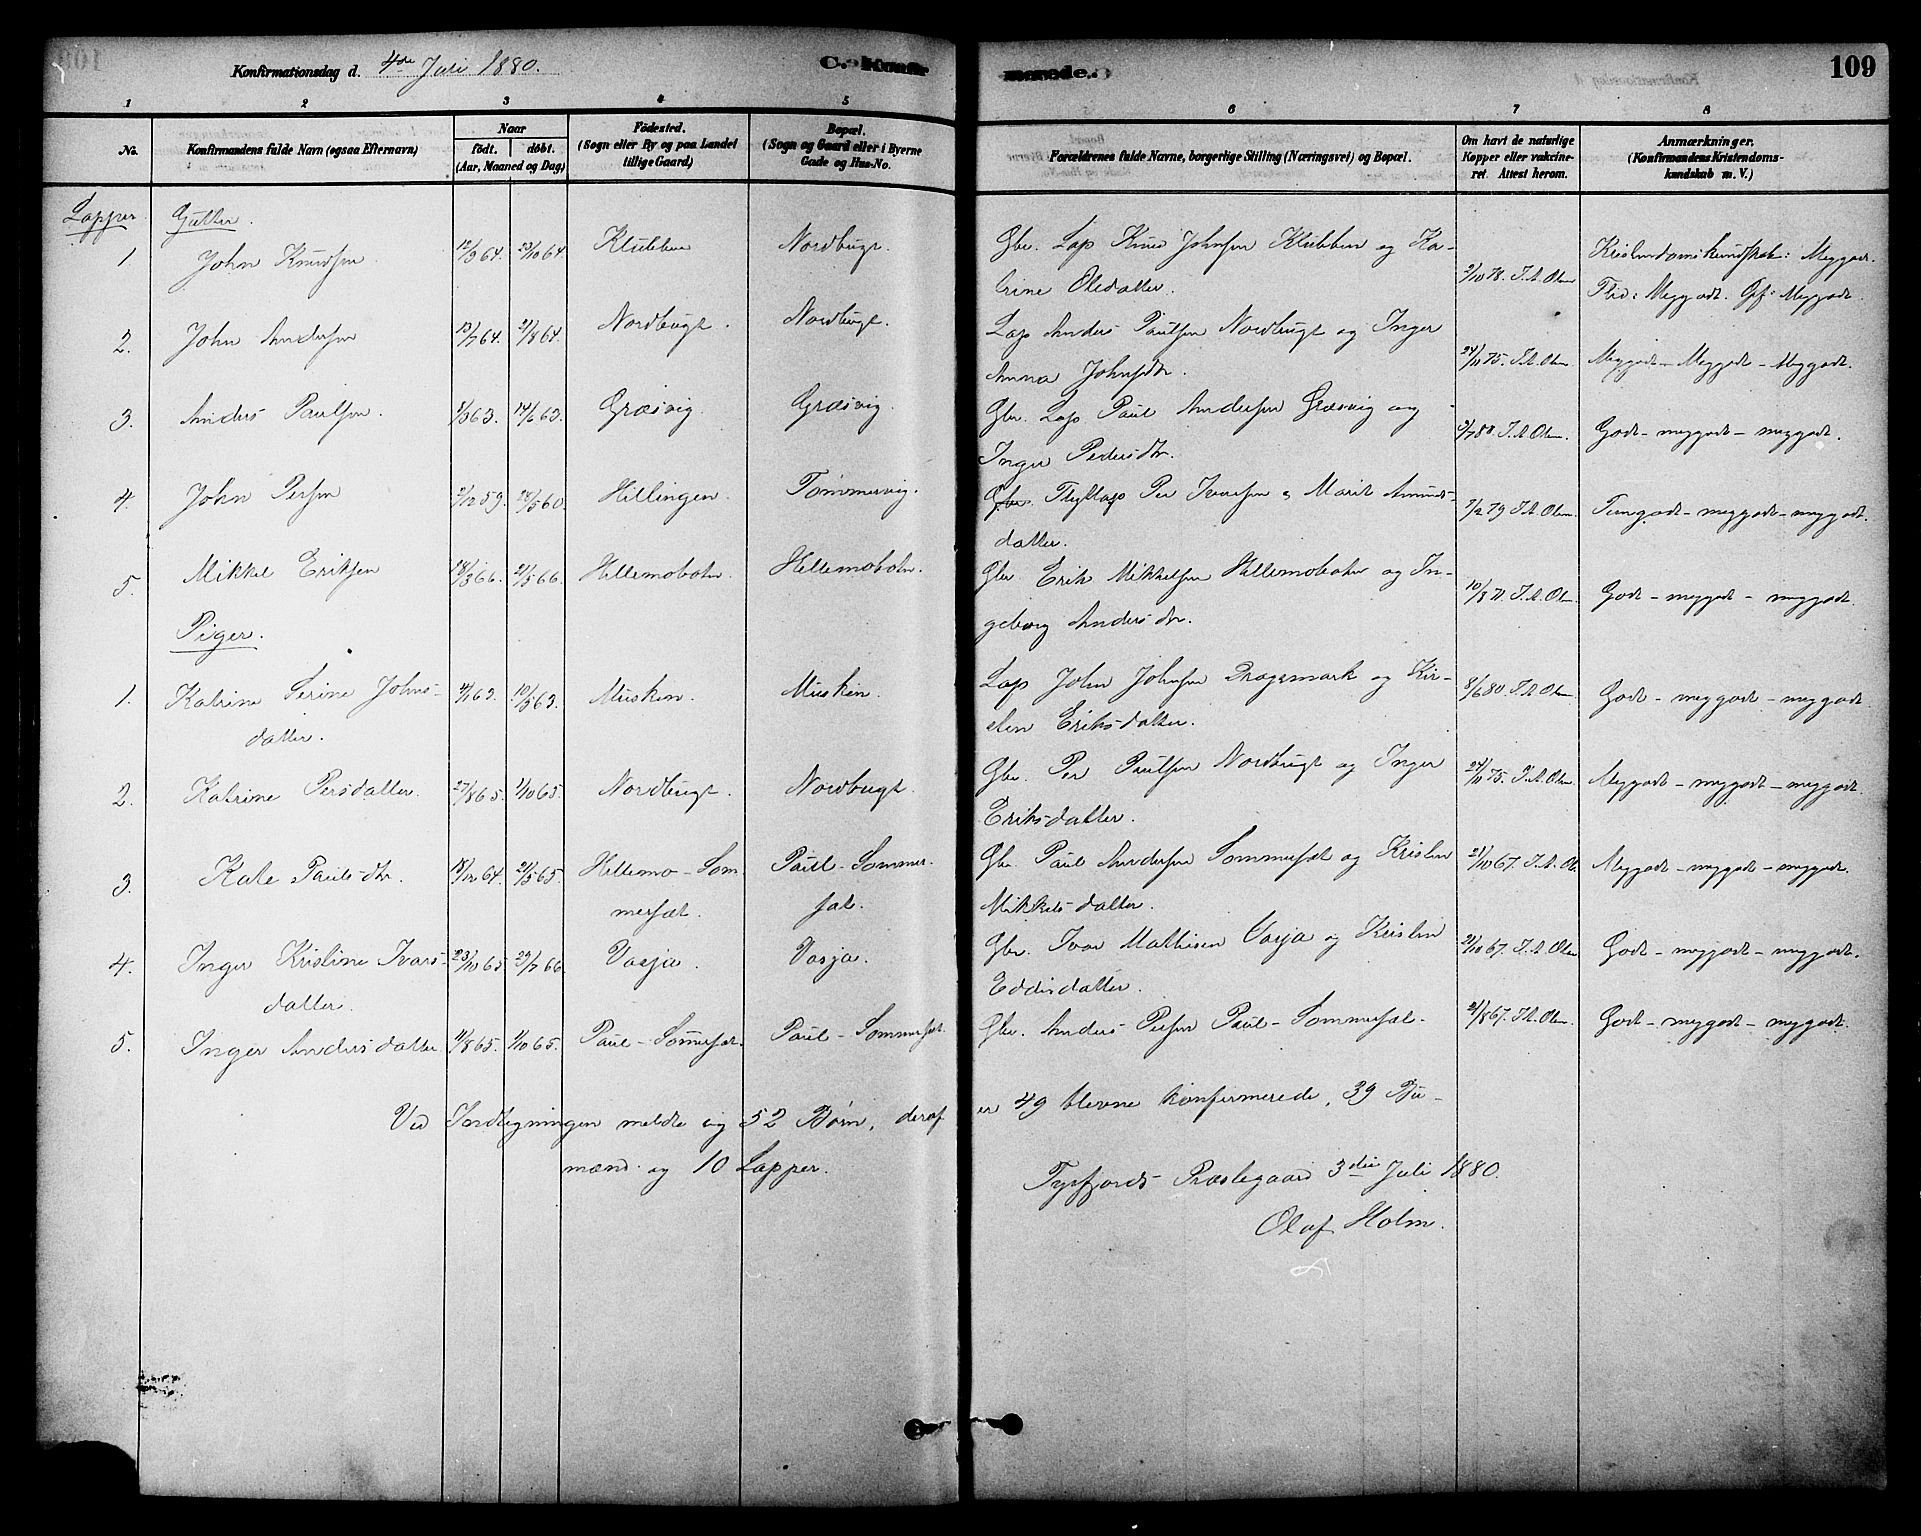 Konfirmationsdag d. 4de Juli 1880.
C. Konfir
merede.
109
1 2 3 4 5 6 7 8
No.
Konfirmandens fulde Navn (ogsaa Efternavn)
Naar
født. døbt.
(Aar, Maaned og Dag)
Fødested.
(Sogn eller By og paa Landet
tillige Gaard)
Bopæl.
(Sogn og Gaard eller i Byerne
Gade og Hus-No.
Forældrenes fulde Navne, borgerlige Stilling (Næringsvei) og Bopæl.
Om havt de naturlige
Kopper eller vakcine-
ret. Attest herom.
Anmærkninger.
(Konfirmandens Kristendoms-
kundskab m. V.)
Lapper. Gutter.
1 John Knudsen 12/3 64. 23/10 64. Klubben Nordbugt. Gbr. Lap Knud Johnsen Klubben og Ka-
trine Olsdatter. 2/10 78. J. A. Olsen Kristendomskundskab: Meggodt.
Flid: Meggodt. Opf: Meggodt.
2. John Andersen 13/7 64. 21/8 64. Nordbugt. Nordbugt. Lap Anders Paulsen Nordbugt og Inger
Anna Johnsdtr. 24/11 75. J. A. Olsen Meggodt - Meggodt - Meggodt.
3. Anders Paulsen. 1/3 63. 14/6 63. Græsvig. Græsvig. Gbr. Lap Paul Andersen Græsvig og
Inger Pedersdtr. 3/7 80. J. A. Olsen. Godt - meggodt - meggodt.
4. John Persen 2/12 59. 28/5 60. Hellingen. Tømmervig. Flytlap Per Ivarsen & Marit Amunds-
datter. 7/2 79 J. A. Olsen Temgodt - meggodt - meggodt.
5. Mikkel Eriksen 18/3 66. 21/5 66. Hellemobotn. Hellemobotn. Gbr Erik Mikkelsen Hellemobotn og In-
geborg Andersdtr. 10/8 71. J. A. Olsen Godt - meggodt - meggodt.
Piger.
1. Katrine Serine Johns-
datter. 4/1 63. 10/5 63. Musken. Musken. Lap John Johnsen Dragsmark og Kir-
sten Eriksdatter. 8/6 80 J. A. Olsen Godt - meggodt - meggodt
2. Katrine Persdatter. 27/8 65. 1/10 65. Nordbugt. Nordbugt. Gbr. Per Paulsen Nordbugt og Inger
Eriksdatter. 24/11 75. J. A. Olsen Meggodt - meggodt - meggodt.
3. Kate Paulsdtr. 18/12 64. 21/5 65. Hellemo-Som-
mersæt. Paul-Sommer-
sæt. Gbr. Paul Andersen Sommersæt og Kristen
Mikkelsdatter. 21/10 67. J. A. Ols. Meggodt - meggodt - meggodt.
4. Inger Kristine Ivars-
datter. 23/10 65. 29/7 66. Vasja. Vasja. Gbr. Ivar Mathisen Vasja og Kristen
Eddisdatter. 21/10 67. J. A. Olsen Godt - meggodt - meggodt.
5. Inger Andersdatter 11/8 65. 1/10 65. Paul-Somersæt. Paul-Sommersæt. Gbr. Anders Persen Paul-Sommersæt. 21/8 67. J. A. Olsen. Godt - meggodt - meggodt.
Ved Indtegningen meldte sig 52 Børn, deraf
er 49 blevne konfirmerede, 39 Bu-
mænd og 10 Lapper.
Tysfjords Præstegaard 3die Juli 1880.
Olaf Holm.